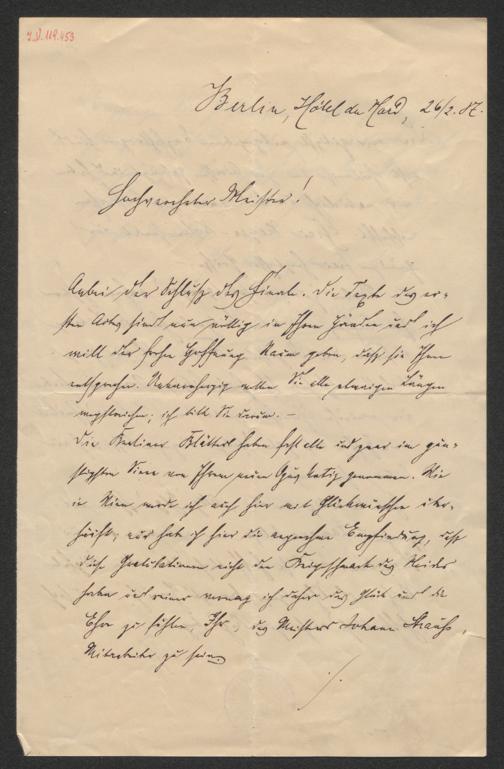 I.N. 119.453
Berlin, Hôtel du Nord, 26/2.87.
Hochverehrter Meister!
Anbei der Schluß des Finale. Die Texte des er-
sten Actes sind nun völlig in Ihren Händen und ich
will der frohen Hoffnung Raum geben, daß sie Ihnen
entsprechen. Unbarmherzig wollen Sie alle etwaigen Längen
wegstreichen; ich bitte Sie darum. –
Die Berliner Blätter haben fast alle und zwar im gün-
stigsten Sinne von Ihrem neuen Notiz genommen. Wie
in Wien werde ich auch hier mit Glückwünschen über-
häuft; nur hab ich hier die angenehme Empfindung, daß
diese Gratulationen nicht den Beigeschmack des Neides
haben und umso mehr ich daher das Glück und die
Ehre zu fühlen, Ihr, des Meisters Johann Strauß,
Mitarbeiter zu sein.